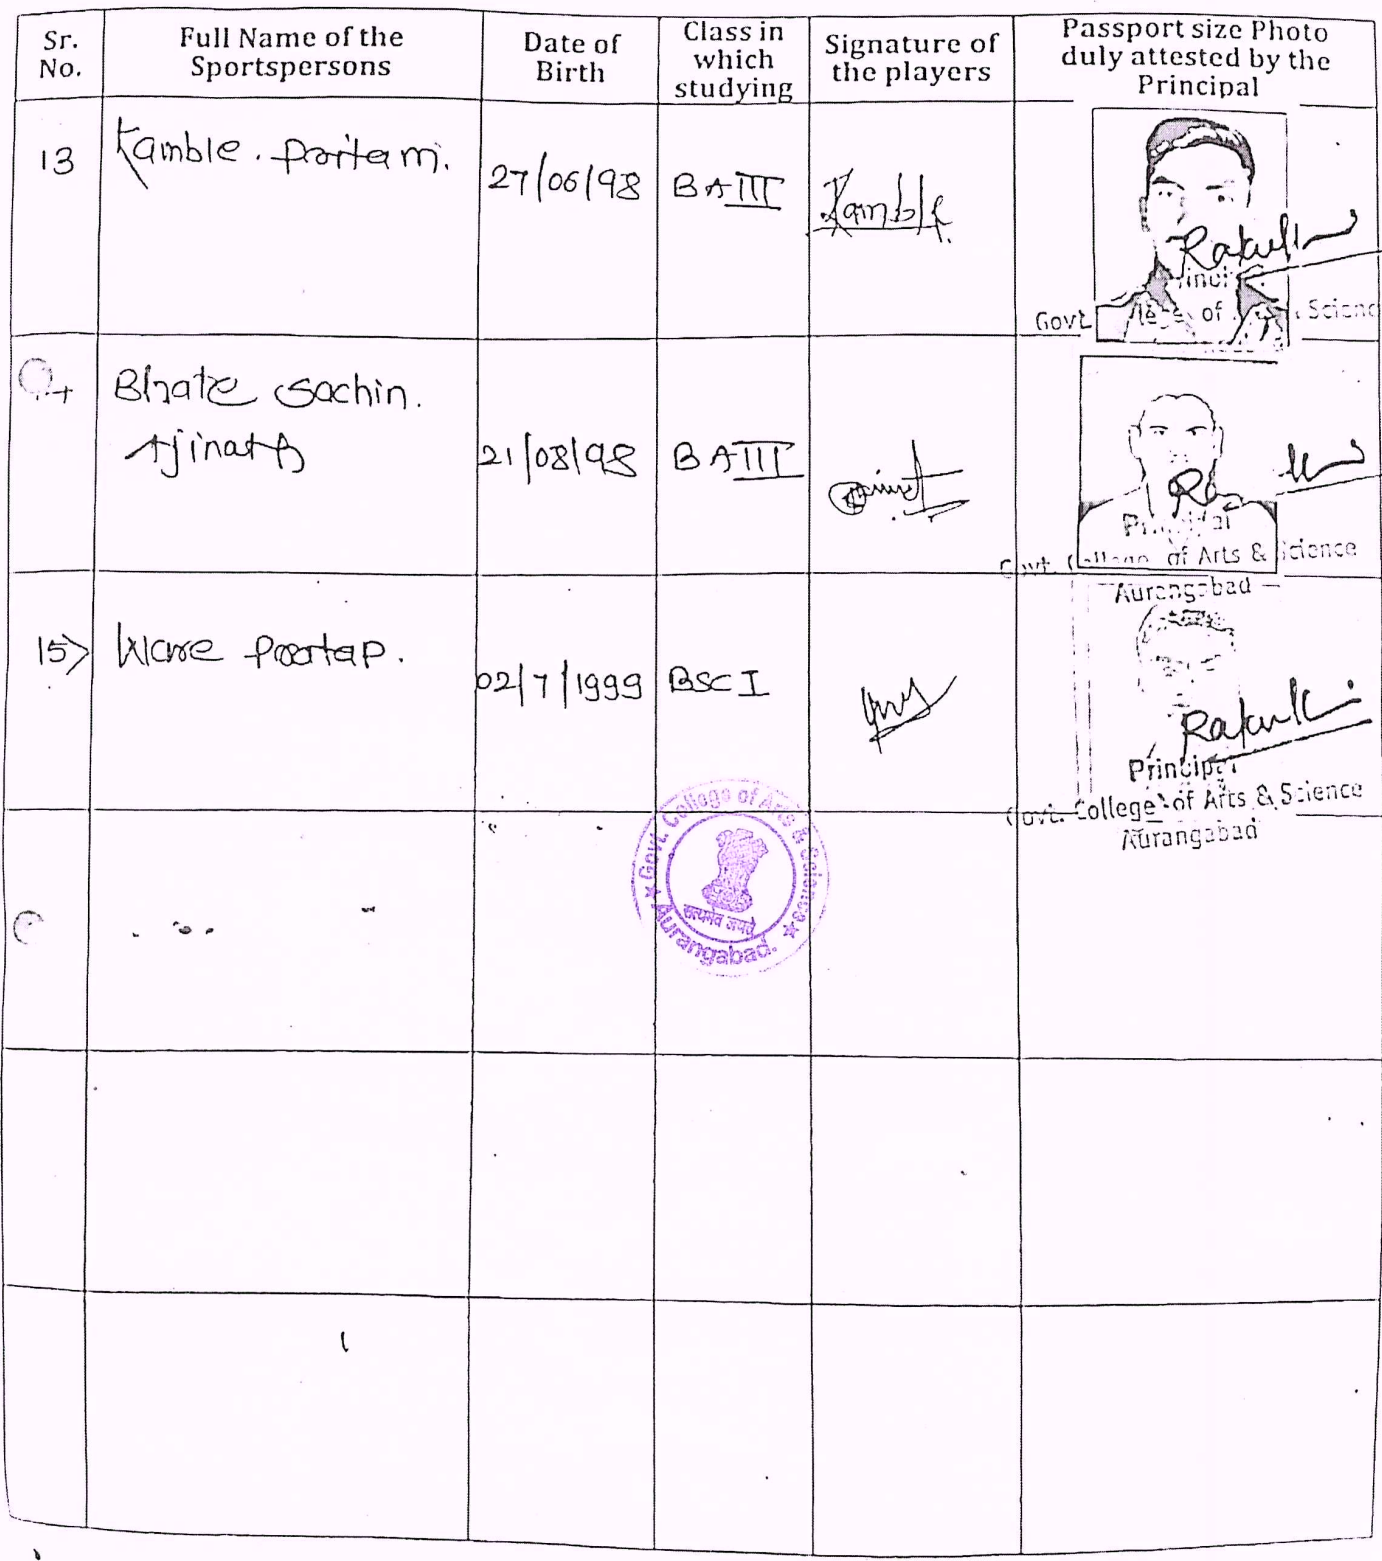 Sr. No.
Full Name of the Sportspersons
Date of Birth
Class in which studying
Signature of the players
Passport size Photo duly attested by the Principal
13
Kamble. Pritam.
27/06/98
BA III
Kamble
Govt of Scienc
Bhate Sachin.
Ajinath
21/08/98
BA III
Principal
Govt. College of Arts & Science
Aurangabad
15>
Ware
02/7/1999
BSC I
Principal
Govt. College of Arts & Science
Aurangabad
Govt. College of Arts & Science
सत्यमेव जयते
Aurangabad.